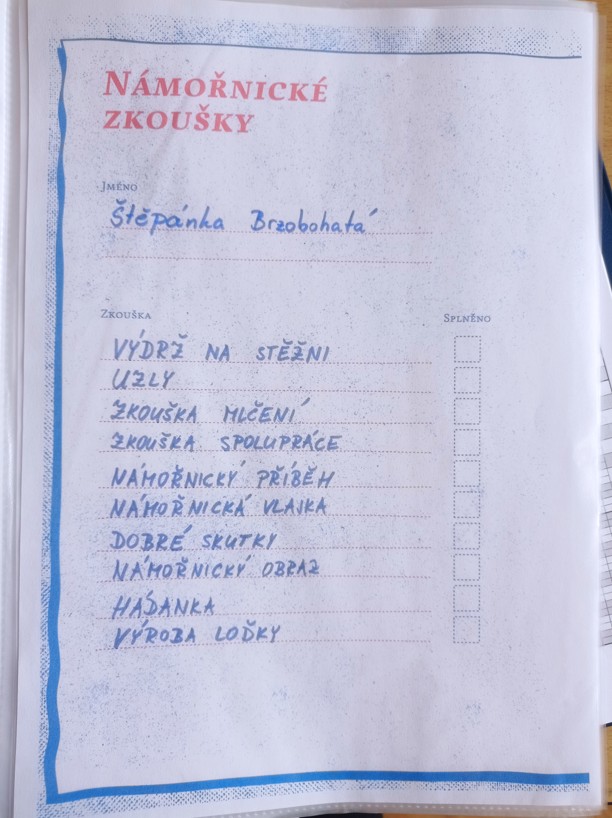 NÁMOŘNICKÉ
ZKOUŠKY
JMÉNO
Štěpánka Brzobohatá
ZKOUŠKA SPLNĚNO
VÝDRŽ NA STĚŽNI
UZLY
ZKOUŠKA MLČENÍ
ZKOUŠKA SPOLUPRÁCE
NÁMOŘNICKÝ PŘÍBĚH
NÁMOŘNICKÁ VLAJKA
DOBRÉ SKUTKY
NÁMOŘNICKÝ OBRAZ
HÁDANKA
VÝROBA LOĎKY